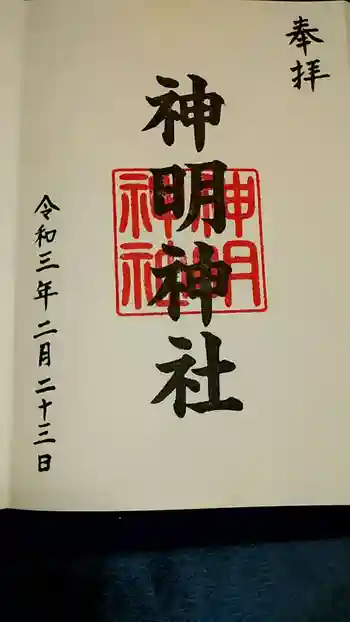 奉拝
神明神社
神明
神社
令和三年二月二十三日